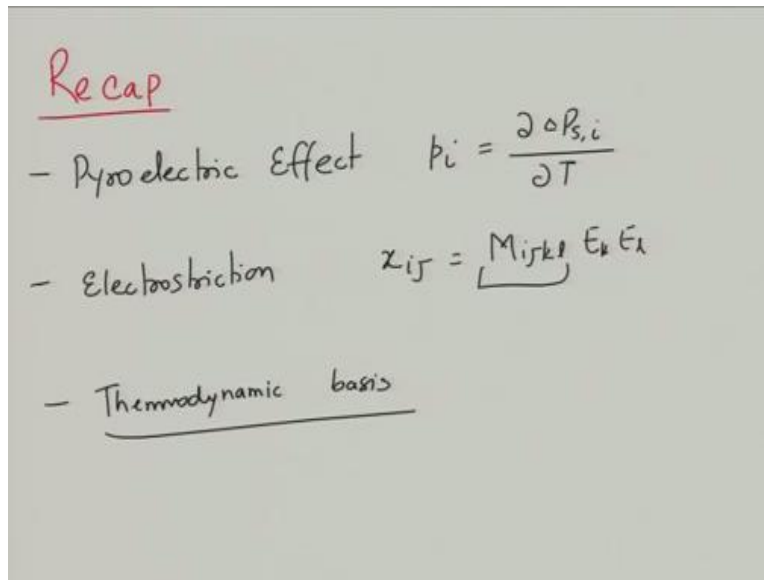 Recap
- Pyroelectric Effect pi = ∂ΔPs,i / ∂T
- Electrostriction xij = Mijkl Ek El
- Thermodynamic basis